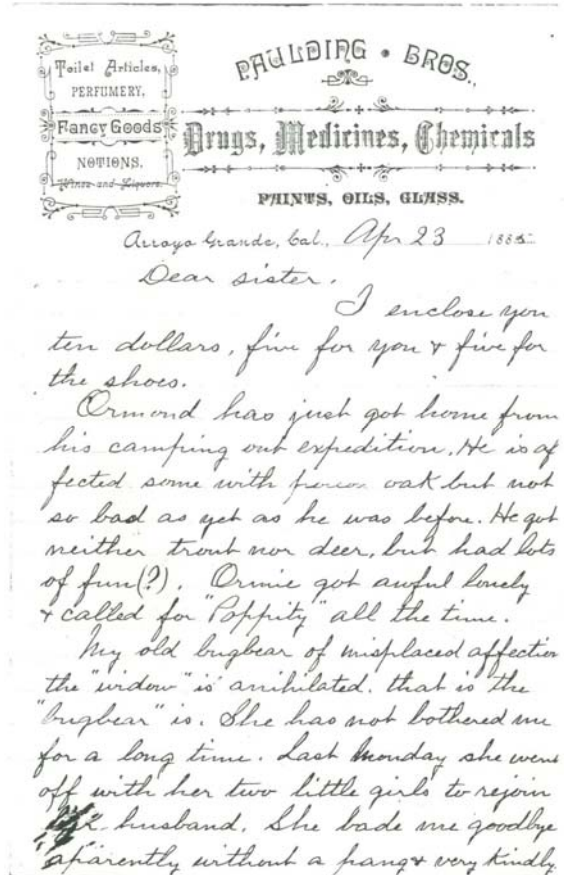 Toilet Articles,
PERFUMERY,
Fancy Goods
NOTIONS.
Wines and Liquors.
PAULDING • BROS.,
Drugs, Medicines, Chemicals
PAINTS, OILS, GLASS.
Arroyo Grande, Cal., Apr 23 1885
Dear sister.
I enclose you
ten dollars, five for you & five for
the shoes.
Ormond has just got home from
his camping out expedition. He is af
fected some with poison oak but not
so bad as yet as he was before. He got
neither trout nor deer, but had lots
of fun(?). Ormie got awful lonely
& called for "Poppity" all the time.
My old bugbear of misplaced affection
the "widow" is anihilated. that is the
"bugbear" is. She has not bothered me
for a long time. Last Monday she went
off with her two little girls to rejoin
husband. She bade me goodbye
aparently without a pang & very kindly